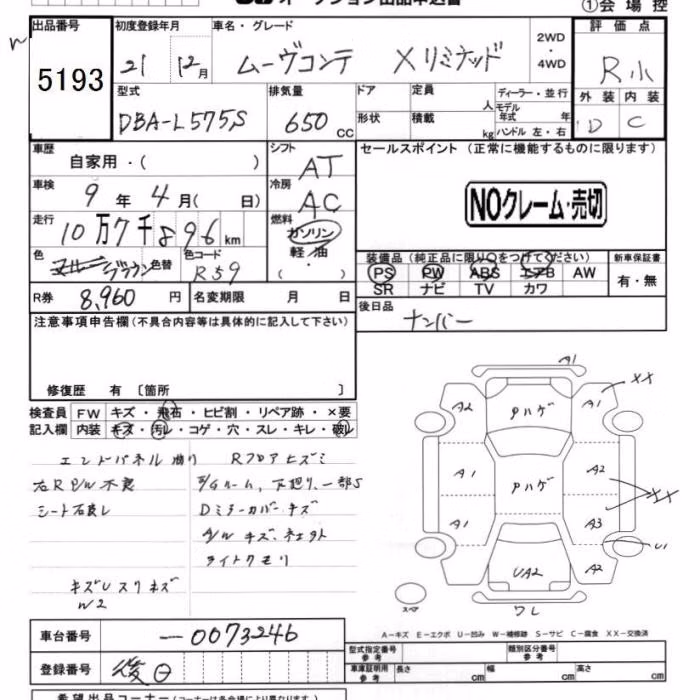 ①会場控
出品番号
5193
初度登録年月
21 12月
車名・グレード
ムーヴコンテ Xリミテッド
2WD
・
4WD
評価点
R小
型式
DBA-L575S
排気量
650 cc
ドア
形状
定員
人
積載
kg
ディーラー・並行
モデル
年式 年
ハンドル 左・右
外装 内装
D C
車歴
自家用・( )
シフト
AT
セールスポイント (正常に機能するものに限ります)
NOクレーム・売切
車検
9年4月( 日)
冷房
AC
走行
10万7千896km
燃料
ガソリン
軽油
( )
色
ブラウン
色替
色コード
R59
装備品 (純正品に限り○をつけてください)
新車保証書
PS PW ABS エアB AW
SR ナビ TV カワ
有・無
R券 8,960円
名変期限 月 日
後日品
ナンバー
注意事項申告欄(不具合内容等は具体的に記入して下さい)
修復歴 有〔箇所 〕
検査員
記入欄
FW キズ・飛石・ヒビ割・リペア跡・×要
内装 キズ・汚レ・コゲ・穴・スレ・キレ・破レ
エンドパネル曲り Rフロアヒズミ
右R P/W不良
シート汚良し
Dミラーカバーキズ
ライトクモリ
W2
A1
XX
A2
Pハゲ
A1
A1
Pハゲ
A2
XX
A1
A3
U1
UA2
A2
ワレ
スペア
A-キズ E-エクボ U-凹み W-補修跡 S-サビ C-腐食 XX-交換済
車台番号
-0073246
登録番号
後日
型式指定番号
参考
類別区分番号
参考
車庫証明用
参考
長さ cm 幅 cm 高さ cm
希望出品コーナー